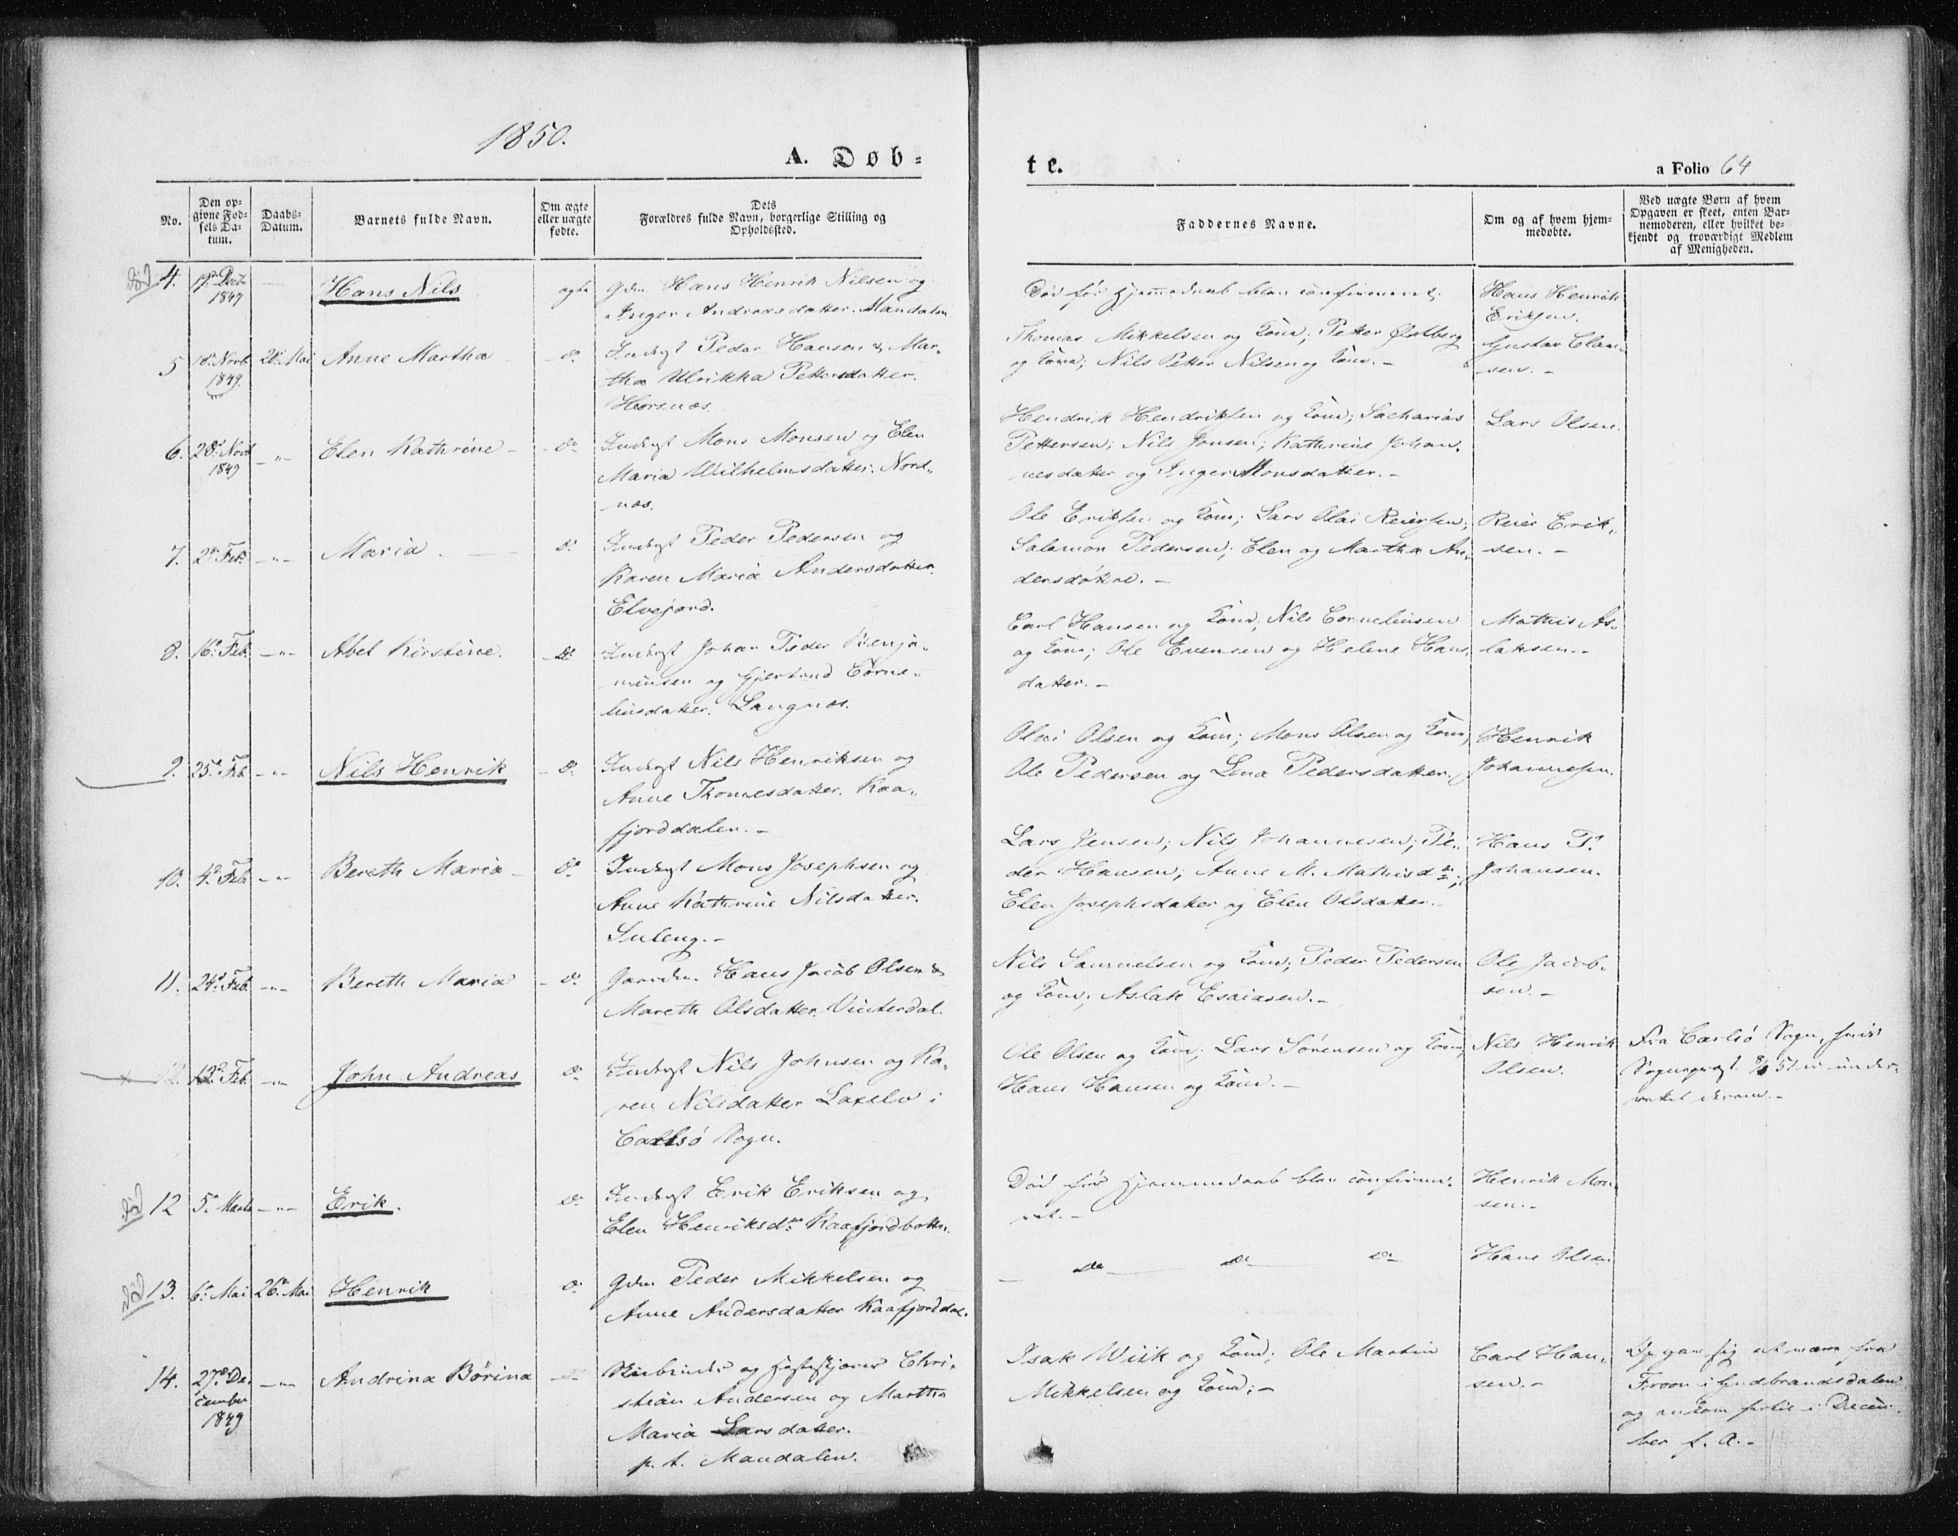 1850.
A. Døb-
te.
a Folio 64
No.
Den op-
givne Fød-
sels Da-
tum.
Daabs-
Datum.
Barnets fulde Navn.
Om ægte
eller uægte
fødte.
Dets
Forældres fulde Navn, borgerlige Stilling og
Opholdssted.
Faddernes Navne.
Om og af hvem hjem-
medøbte.
Ved uægte Børn af hvem
Opgaven er skeet, enten Bar-
nemoderen, eller hvilket be-
kjendt og troværdigt Medlem
af Menigheden.
død 4.
1849
Hans Nils
ægte
Gdm. Hans Henrik Nilsen og
Inger Andreasdatter. Mandalen
Død før Hjemmedaab blev confirmeret.
Hans Henrik
Eriksen.
5
18de Novb.
1849.
26 Mai
Anne Martha
do
Inderst Peder Hansen & Mar-
tha Ulrikka Pettersdatter.
Horsnæs.
Thomas Mikkelsen og Kone; Petter Østberg
og Kone; Nils Petter Nilsen og Kone. -
Gustav Clau-
sen. -
6.
28de Novb
1849
- " -
Elen Kathrine -
do
Inderst Mons Monsen og Elen
Maria Wilhelmsdatter. Nord-
næs.
Hendrik Hendriksen og Kone; Zacharias
Pettersen; Nils Jonsen; Kathrine Johan-
nesdatter og Inger Monsdatter. -
Lars Olsen.
7.
2de Feb.
- " -
Maria.
do
Inderst Peder Pedersen og
Karen Maria Andersdatter.
Elvejord.
Ole Eriksen og Kone; Lars Olai Reiersen;
Salamon Pedersen; Elen og Martha An-
dersdøtre. -
Reier Erik-
sen. -
8.
16de Feb.
- " -
Abel Kirstine.
do
Inderst Johan Peder Benja-
minsen og Gjertrud Corne-
liusdatter. Langnæs.
Carl Hansen og Kone; Nils Corneliusen
og Kone; Ole Evensen og Helene Hans-
datter. -
Mathis As-
laksen. -
9.
25de Feb.
- " -
Nils Henrik
- do
Inderst Nils Henriksen og
Anne Thomesdatter. Kaa-
fjorddalen. -
Olai Olsen og Kone; Mons Olsen og Kone;
Ole Pedersen og Lena Pedersdatter.
Henrik
Johannesen.
10.
4de Feb
- " -
Bereth Maria -
do
Inderst Mons Josephsen og
Anne Kathrine Nilsdatter.
Lars Jensen; Nils Johannesen; Pe-
der Hansen; Anne M. Mathisdtr;
Elen Josephsdatter og Elen Olsdatter. -
Hans P.
Johansen.
11.
24de Feb.
- " -
Bereth Maria
- do
Gaardm. Hans Jacob Olsen &
Mareth Olsdatter. Vinterdal.
Nils Samuelsen og Kone; Peder Pedersen
og Kone; Aslak Esaiasen. -
Ole Jacob-
sen. -
12de Feb.
- " -
John Andreas
do
Inderst Nils Johnsen og Ka-
ren Nilsdatter Laxelv i
Carlsø Sogn.
Ole Olsen og Kone; Lars Sørensen og Kone;
Hans Hansen og Kone. -
Nils Henrik
Olsen.
Fra Carlsø Sogn, hvis
Sognepræst 51 er under-
rettet derom. -
død 12
5te Marts
- " -
Erik.
do
Inderst Erik Eriksen og
Elen Henriksdtr Kaafjordbotn.
Død før Hjemmedaab blev confirme-
ret. -
Henrik Mon-
sen. -
død 13.
6te Mai
26de Mai
Henrik
do
Gdm. Peder Mikkelsen og
Anne Andersdatter Kaafjorddal.
- do - do do
Hans Olsen
14.
27de De-
cember
1849
- " -
Andrina Børina
og Chri-
stian Andersen og Martha
Maria Larsdatter.
p. t. Mandalen.
Isak Wiik og Kone; Ole Martin
Mikkelsen og Kone. -
Carl Han-
sen. -
Froen i Gudbrandsdalen
og ankom hertil i Decem-
ber f. A. -